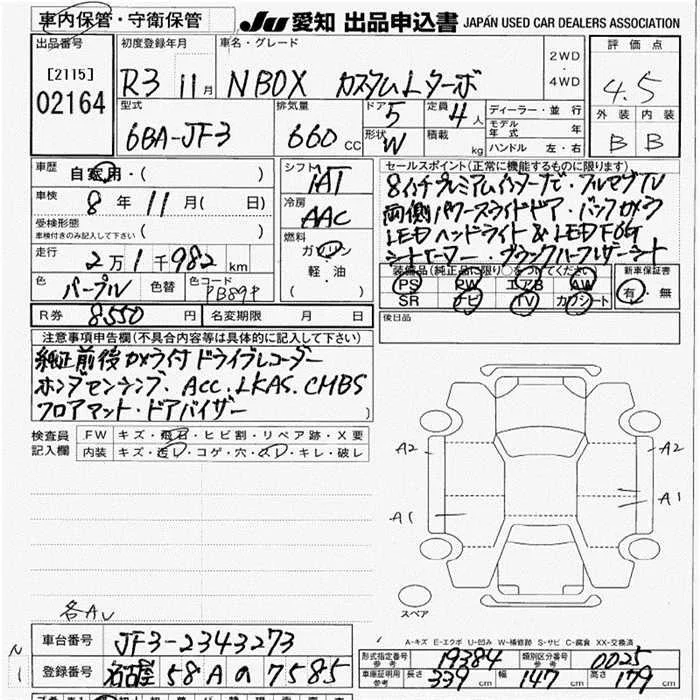 車内保管・守衛保管 JU 愛知 出品申込書 JAPAN USED CAR DEALERS ASSOCIATION
出品番号 [2115] 02164
初度登録年月 R3 11月
車名・グレード NBOX カスタムLターボ
2WD・4WD
評価点 4.5
外装 内装
B B
型式 6BA-JF3
排気量 660cc
ドア 5 定員 4人
形状 W 積載 kg
ディーラー・並行
モデル年式 年
ハンドル 左・右
車歴 自家用・( )
車検 8年11月( 日)
受検形態
車検付きのみ記入して下さい ( )
走行 2万1千982km
色 パープル 色替 色コード PB89P
R券 8550円 名変期限 月 日
シフト IAT
冷房 AAC
燃料 ガソリン
軽・油
( )
セールスポイント(正常に機能するものに限ります)
8インチプレミアムインターナビ・フルセグTV
両側パワースライドドア・バックカメラ
LEDヘッドライト&LEDFOG
シートヒーター・ブラックハーフレザーシート
装備品(純正品に限り○をつけてください)
PS PW エアB AW
SR ナビ TV カワシート
新車保証書
有・無
後日品
注意事項申告欄(不具合内容等は具体的に記入して下さい)
純正前後カメラ付ドライブレコーダー
ホンダセンシング、ACC、LKAS、CMBS
フロアマット・ドアバイザー
検査員記入欄
FW キズ・飛石・ヒビ割・リペア跡・X要
内装 キズ・汚レ・コゲ・穴・スレ・キレ・破レ
A2 A2
A1 A1
スペア
A-キズ E-エクボ U-凹み W-補修跡 S-サビ C-腐食 XX-交換済
車台番号 JF3-2343273
登録番号 名古屋 58A の 7585
形式指定番号 参考 19384 類別区分番号 参考 0025
車庫証明用 参考 長さ 339cm 幅 147cm 高さ 179cm